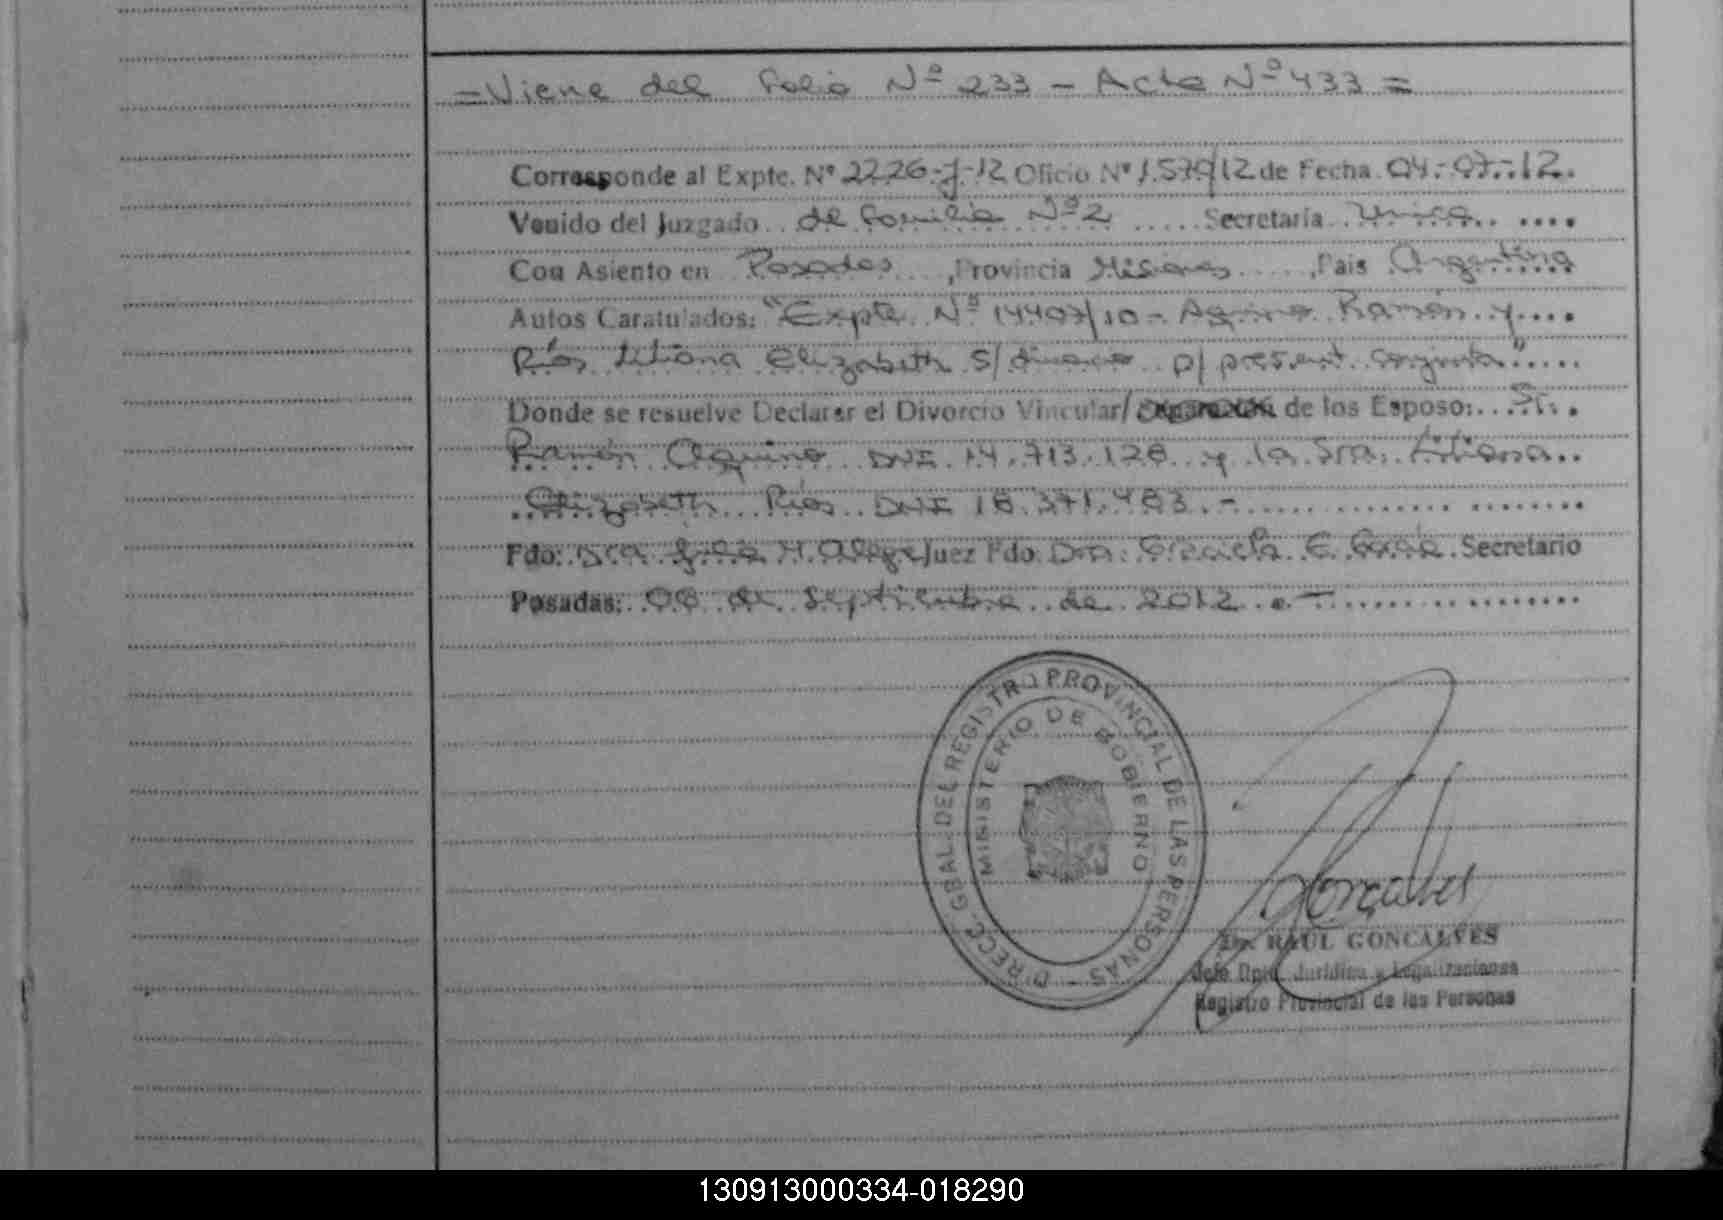 = Viene del folio Nº 233 - Acta Nº 433 =
Corresponde al Expte. Nº 2226-J-12 Oficio Nº 1.579/12 de Fecha 04-07-12.
Venido del Juzgado de Familia Nº 2 Secretaría Unica
Con Asiento en Posadas, Provincia Misiones, País Argentina
Autos Caratulados: "Expte. Nº 14407/10 - Aquino Ramón y
Ríos Liliana Elizabeth s/ divorcio p/ present. conjunta"
Donde se resuelve Declarar el Divorcio Vincular/ de los Esposo: Sr.
Ramón Aquino DNI 14.713.128 y la Sra. Liliana
Elizabeth Ríos DNI 18.371.483.-
Fdo: Dra. M. Juez Fdo. Dra. Graciela E. Secretario
Posadas: 06 de Septiembre de 2012.-
DIRECC. GRAL. DEL REGISTRO PROVINCIAL DE LAS PERSONAS -
MINISTERIO DE GOBIERNO
Goncalves
Dr. RAUL GONCALVES
Jefe Dpto. Jurídico y Legalizaciones
Registro Provincial de las Personas
130913000334-018290